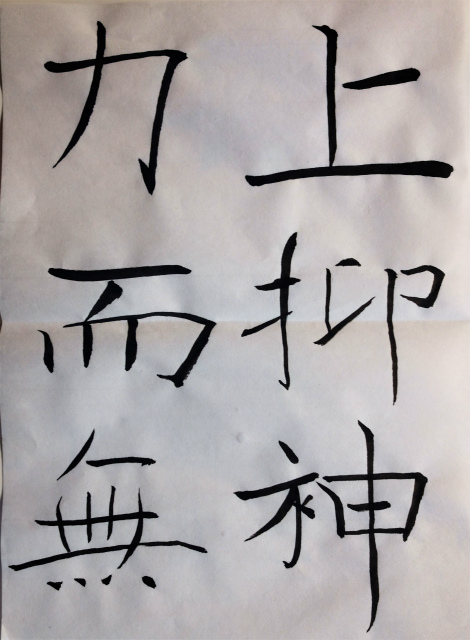 上抑神
力而無